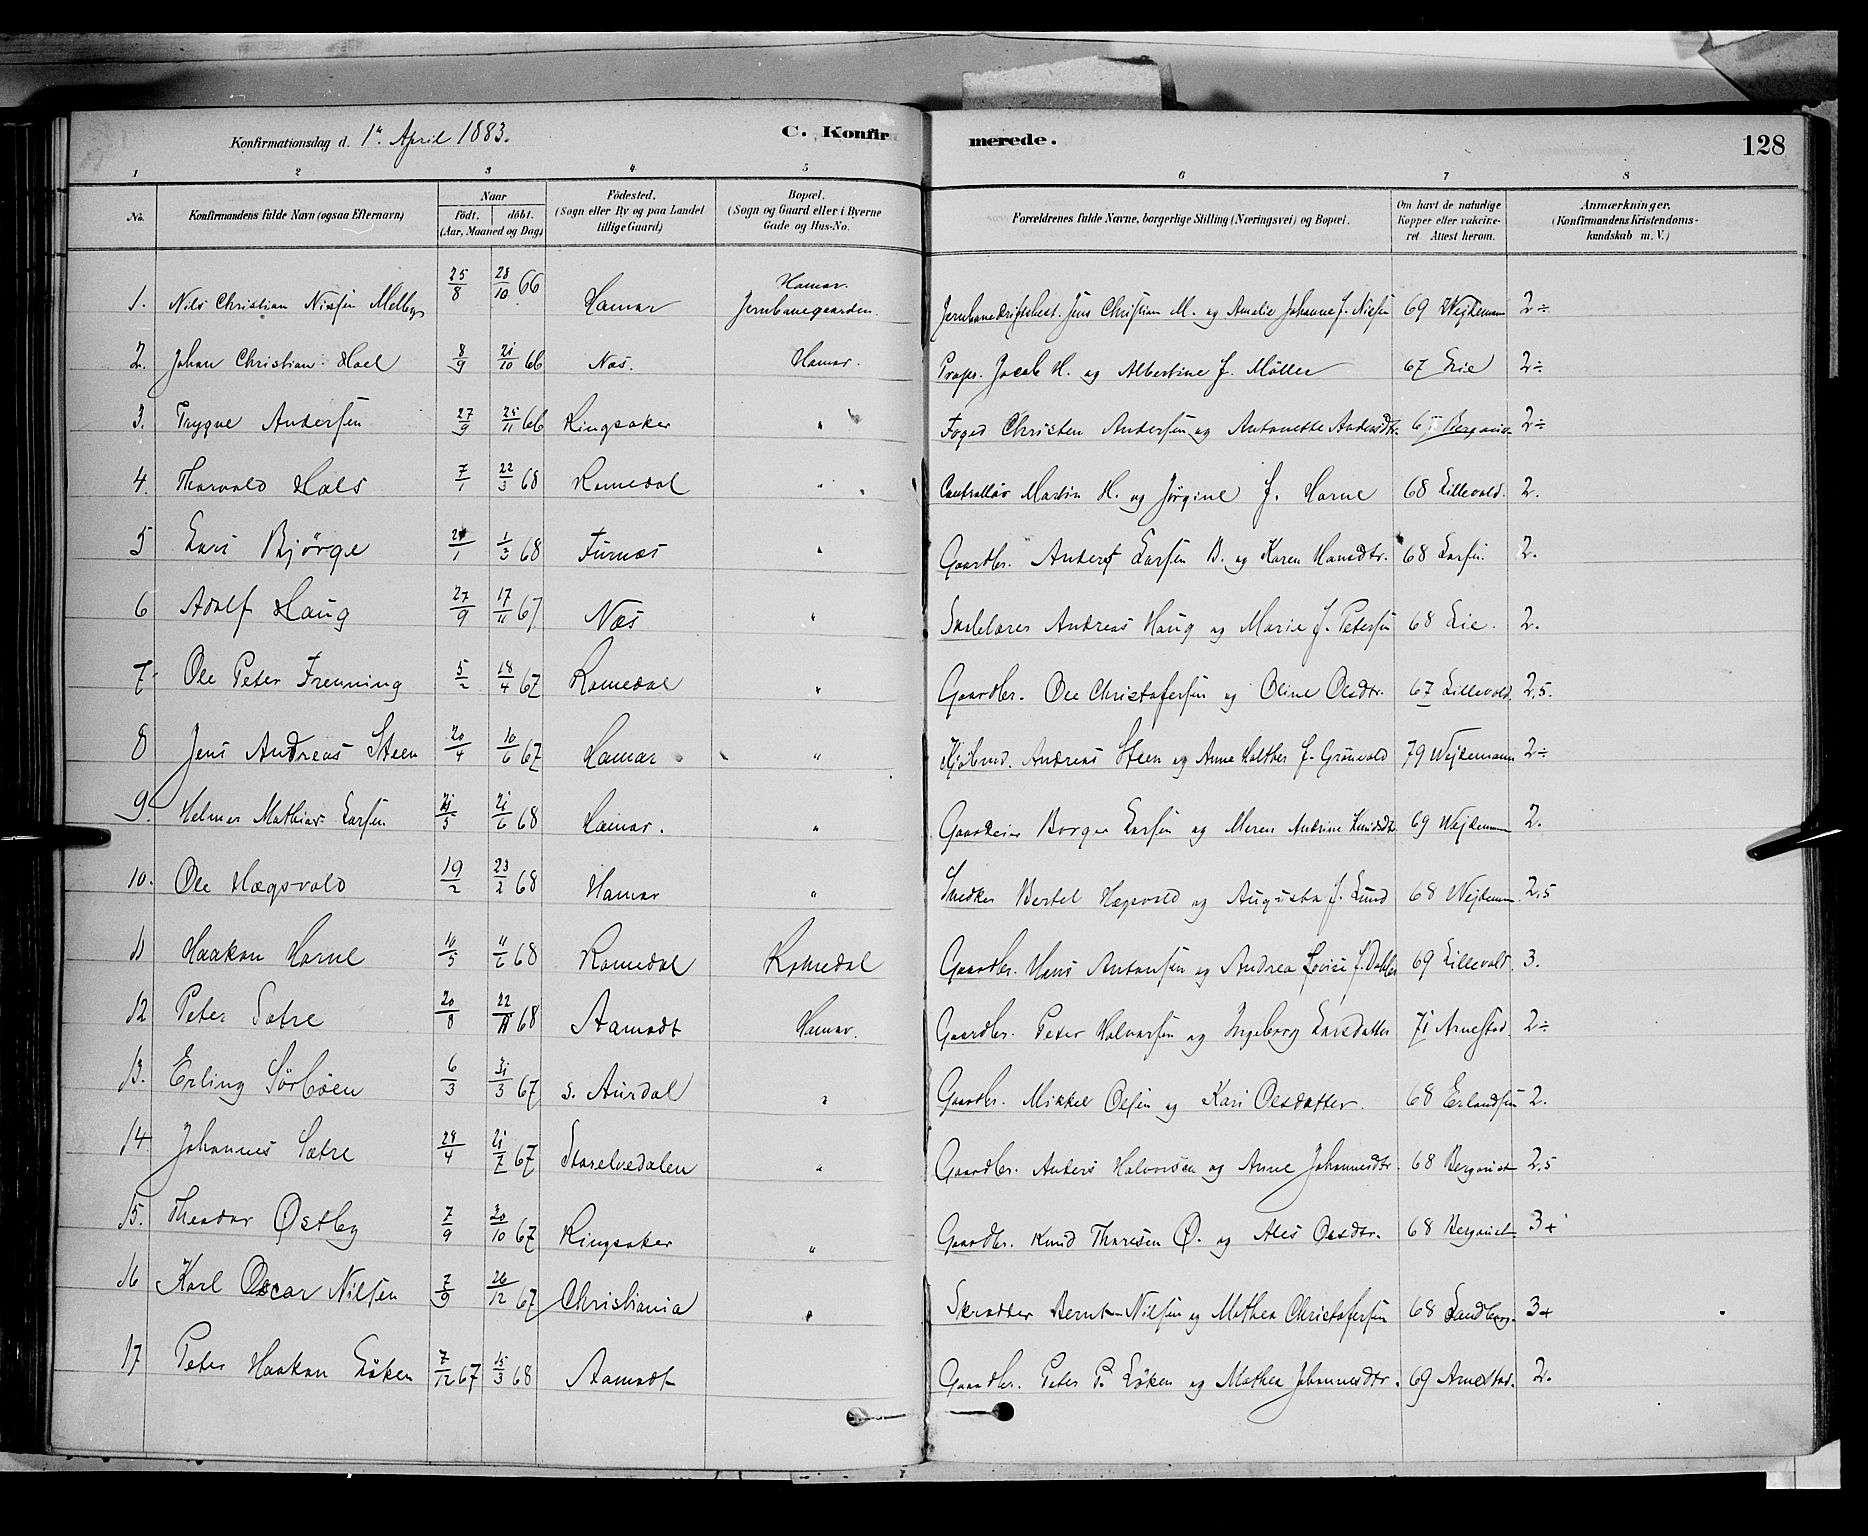 Konfirmationsdag d. 1ste April 1883.
C. Konfirmerede.
128
1 2 3 4 5 6 7 8
No.
Konfirmandens fulde Navn (ogsaa Efternavn)
Naar
födt. döbt.
(Aar, Maaned og Dag)
Födested.
(Sogn eller By og paa Landet
tillige Gaard)
Bopæl.
(Sogn og Gaard eller i Byerne
Gade og Hus-No.
Forældrenes fulde Navne, borgerlige Stilling (Næringsvei) og Bopæl.
Om havt de naturlige
Kopper eller vakcine-
ret Attest herom.
Anmærkninger.
(Konfirmandens Kristendoms-
kundskab m. V.)
1. Nils Christian Nissen Melbye 25/8 28/10 66 Hamar Hamar. Jernbanegaarden. Jernbanedriftsbest. Jens Christian M. og Amalie Johanne f. Nissen 69 Wejdemann 2÷
2. Johan Christian Hoel 8/9 21/10 66 Næs. Hamar. Propr. Jacob H. og Albertine f. Møller 67 Lie 2÷
3. Trygve Andersen 27/9 25/11 66 Ringsaker " Foged Christen Andersen og Antonette Andersdtr. Bergqvist 2÷
4. Thorvald Hals 7/1 22/3 68 Romedal " Controllør Martin H. og Jørgine f. Horne 68 Lillevold. 2.
5 Lars Bjørge 1/3 68 Furnæs " Gaardbr. Anders Larsen B. og Karen Hansdtr. 68 Larsen. 2.
6 Adolf Haug 27/9 17/11 67 Næs " Skolelærer Andreas Haug og Marie f. Petersen 68 Lie. 2.
7 Ole Peter Frenning 5/2 18/4 67 Romedal " Gaardbr. Ole Christofersen og Oline Olsdtr. 67 Lillevold. 2,5.
8 Jens Andreas Steen 20/4 10/6 67 Hamar " Kjøbmd. Andreas Steen og Anne Malthea f. Grönvold 79 Wejdemann 2÷
9. Helmer Mathias Larsen 21/5 21/6 68 Hamar. " Gaardeier Borger Larsen og Maren Andrine Knudsdtr. 69 Wejdemann 2.
10. Ole Hægsvold 19/2 23/2 68 Hamar " Snedker Bertel Hægsvold og Augusta f. Lund 68 Wejdemann. 2,5
11 Haakon Horne 10/5 11/6 68 Romedal Romedal Gaardbr. Hans Antonsen og Andrea Lovise f. Dahler 69 Lillevold. 3.
12 Peter Sætre 20/8 22/11 68 Aamodt Hamar. Gaardbr. Peter Halvorsen og Ingeborg Larsdatter 71 Arnestad. 2÷
13. Erling Sörböen 6/3 31/3 67 s. Aurdal " Gaardbr. Mikkel Olsen og Kari Olsdatter. 68 Erlandsen 2.
14. Johannes Sætre 28/4 21/7 67 Storelvedalen " Gaardbr. Anders Halvorsen og Anne Johannesdtr. 68 Bergqvist 2,5
15. Theodor Østby 7/9 20/10 67 Ringsaker " Gaardbr. Knud Thoresen Ø. og Ales Olsdtr. 68 Bergqvist 3+
16 Karl Oscar Nilsen 7/9 26/12 67 Christiania " Skrædder Bernt Nilsen og Mathea Christofersen 68 Sandberg. 3+
17 Peter Haakon Løken 7/12 67 15/3 68 Aamodt Gaardbr. Peter P. Løken og Mathea Johannesdtr. 69 Arnestad. 2.